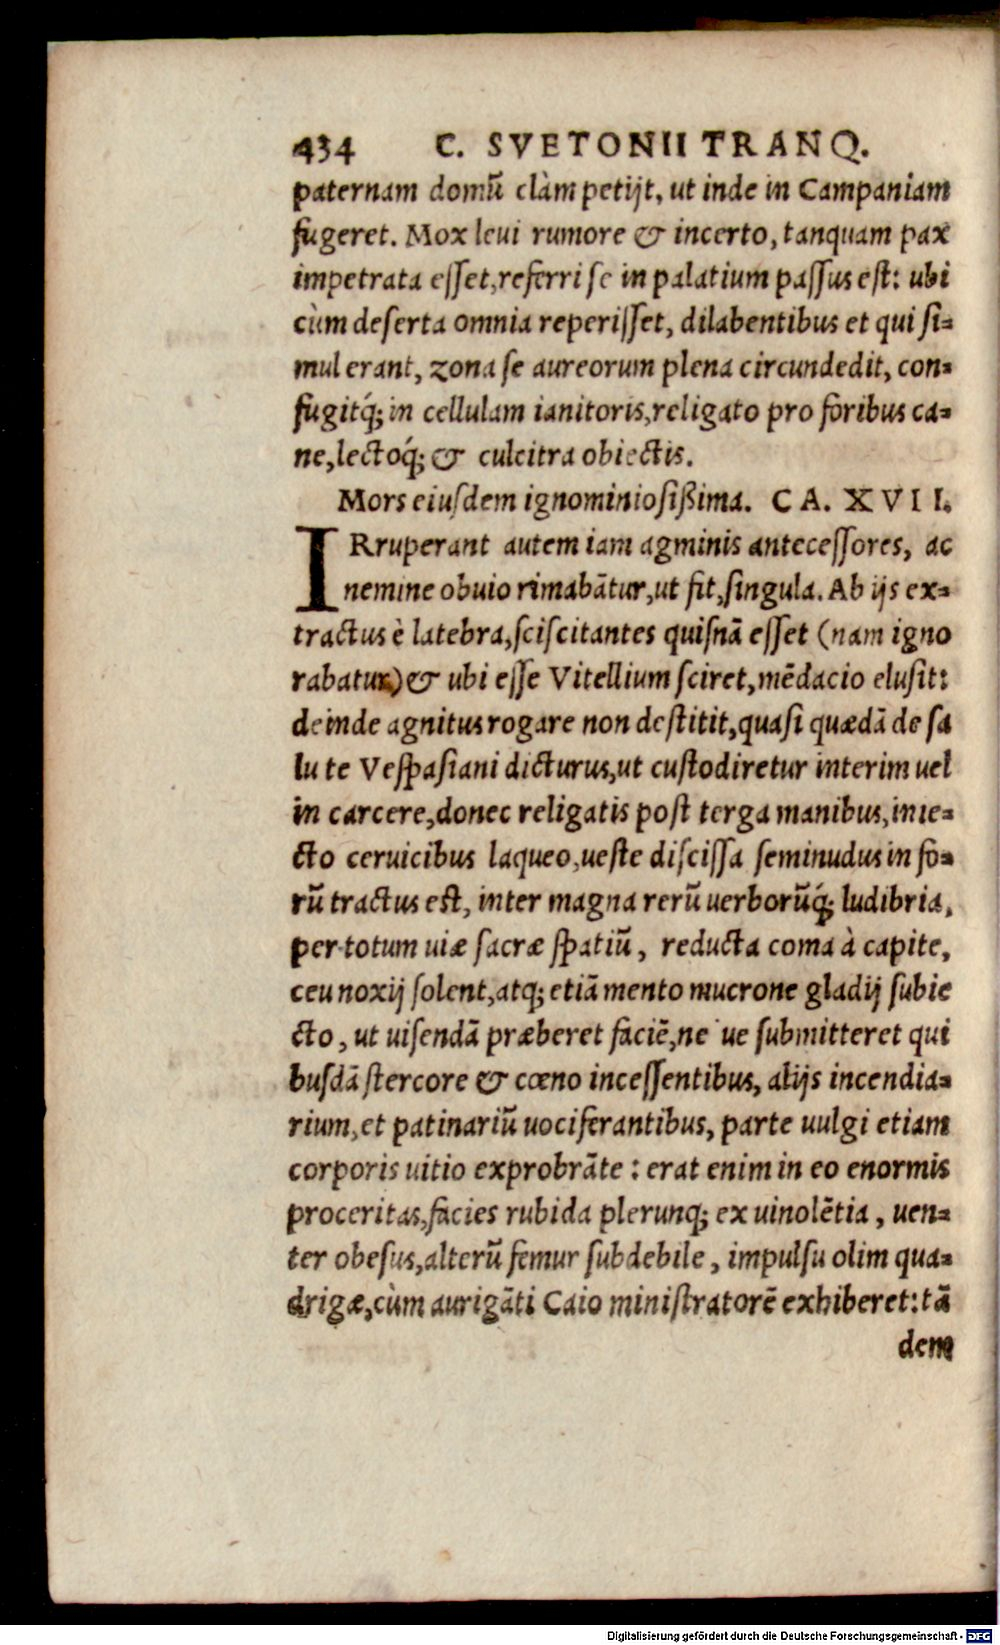 434 C. SVETONII TRANQ.
paternam domũ clàm petijt, ut inde in Campaniam
fugeret. Mox leui rumore & incerto, tanquam pax
impetrata eſſet, referri ſe in palatium paſſus eſt: ubi
cùm deſerta omnia reperiſſet, dilabentibus et qui ſi=
mul erant, zona ſe aureorum plena circundedit, con=
fugitq́; in cellulam ianitoris, religato pro foribus ca=
ne, lectoq́; & culcitra obiectis.
Mors eiuſdem ignominioſißima. CA. XVII.
IRruperant autem iam agminis anteceſſores, ac
nemine obuio rimabãtur, ut fit, ſingula. Ab ijs ex=
tractus è latebra, ſciſcitantes quiſnã eſſet (nam igno
rabatur) & ubi eſſe Vitellium ſciret, mẽdacio eluſit:
deinde agnitus rogare non deſtitit, quaſi quædã de ſa
lu te Veſpaſiani dicturus, ut cuſtodiretur interim uel
in carcere, donec religatis poſt terga manibus, inie=
cto ceruicibus laqueo, ueſte diſciſſa ſeminudus in fo=
rũ tractus eſt, inter magna rerũ uerborũq́; ludibria,
per totum uiæ ſacræ ſpatiũ, reducta coma à capite,
ceu noxij ſolent, atq; etiã mento mucrone gladij ſubie
cto, ut uiſendã præberet faciẽ, ne ue ſubmitteret qui
buſdã ſtercore & cœno inceſſentibus, alijs incendia=
rium, et patinariũ uociferantibus, parte uulgi etiam
corporis uitio exprobrãte: erat enim in eo enormis
proceritas, facies rubida plerunq; ex uinolẽtia, uen=
ter obeſus, alterũ femur ſubdebile, impulſu olim qua=
drigæ, cùm aurigãti Caio miniſtratorẽ exhiberet: tã
dem
Digitalisierung gefördert durch die Deutsche Forschungsgemeinschaft - DFG